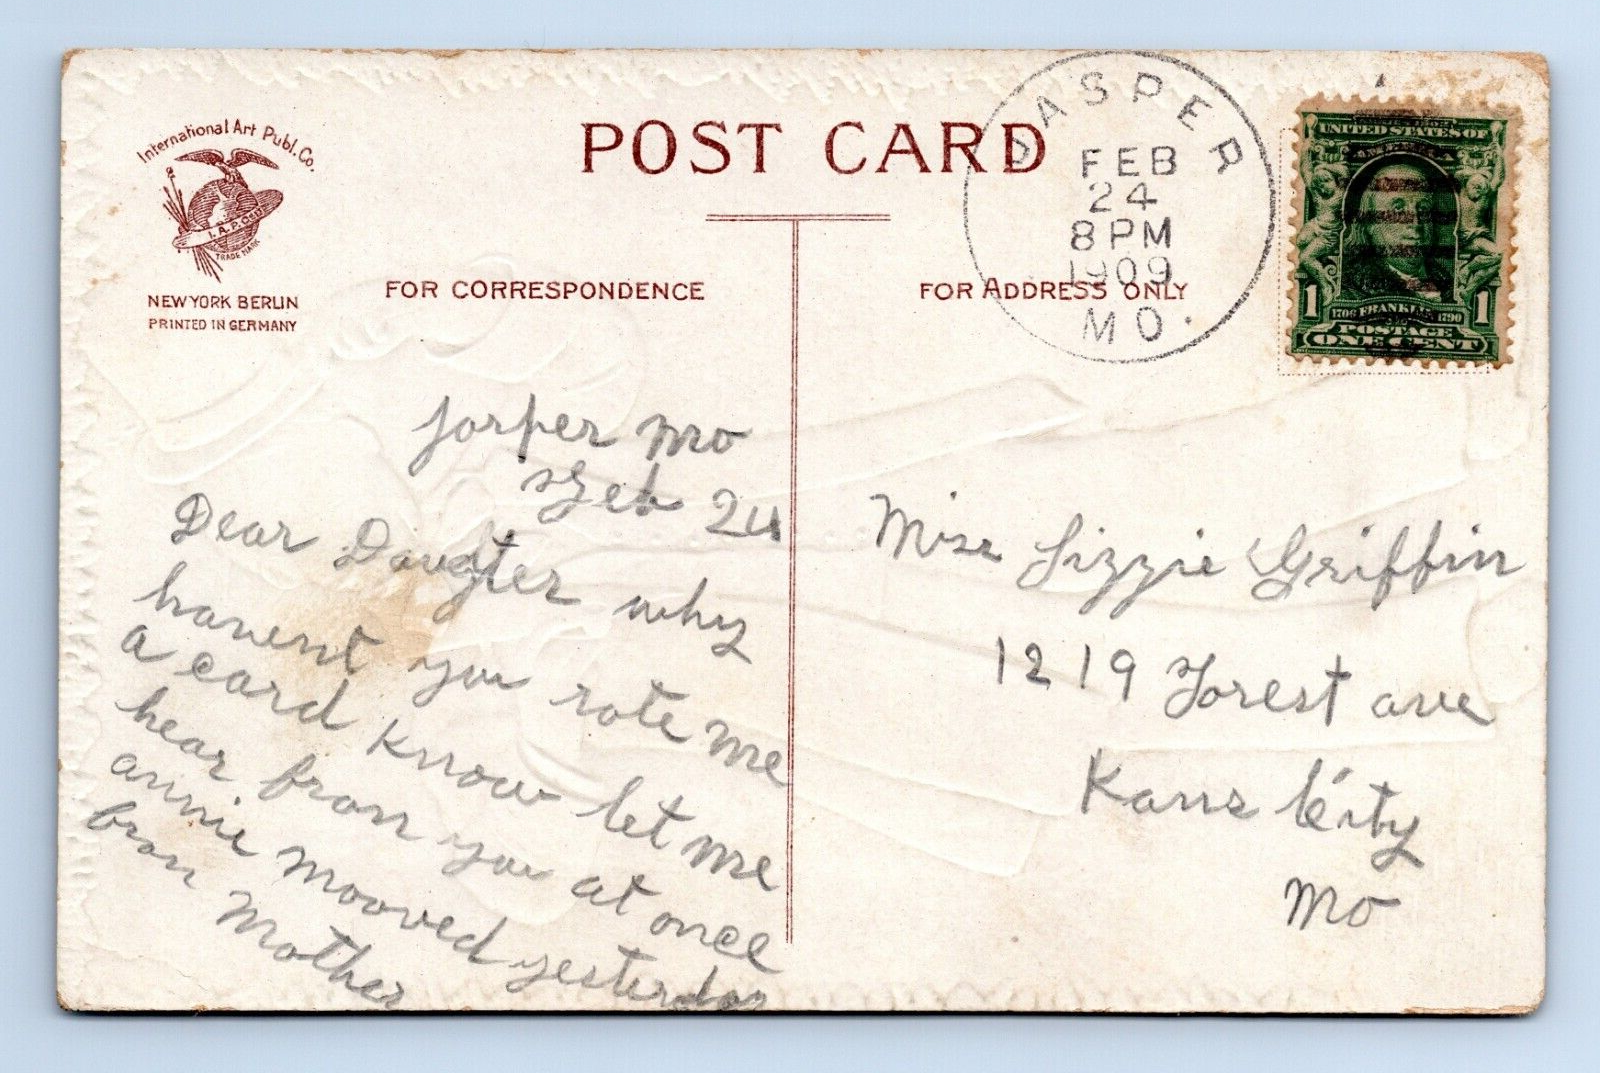 International Art Publ. Co.
I.A.P. Co.
TRADE MARK
NEW YORK BERLIN
PRINTED IN GERMANY
POST CARD
FOR CORRESPONDENCE
FOR ADDRESS ONLY
JASPER
FEB
24
8 PM
1909
MO.
UNITED STATES OF
AMERICA
1 1
1706 FRANKLIN 1790
POSTAGE
ONE CENT
Jasper Mo
Feb 24
Dear Daugter why
havent you rote me
a card know let me
hear from you at once
annie mooved yesterday
from Mother
Miss Lizzie Griffin
1219 Forest ave
Kans City
Mo